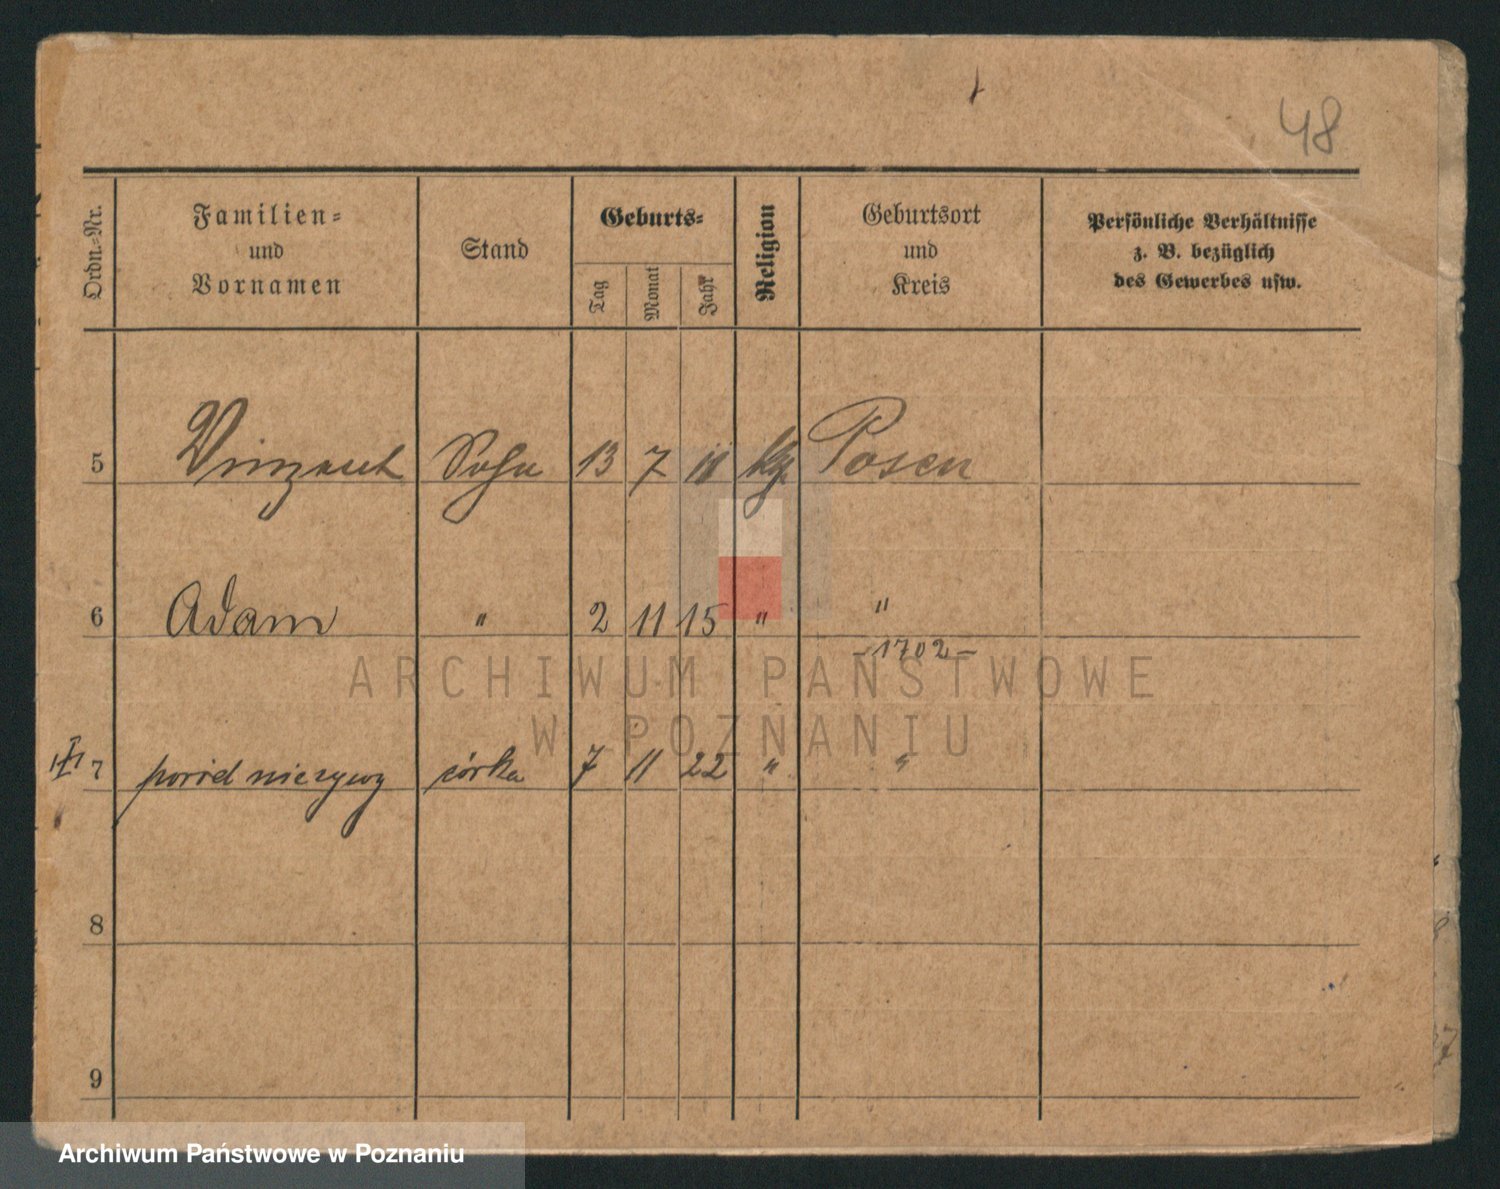 48
Ordn.-Nr.
Familien-
und
Vornamen
Stand
Geburts-
Tag
Monat
Jahr
Religion
Geburtsort
und
Kreis
Persönliche Verhältnisse
z. B. bezüglich
des Gewerbes usw.
5 Vinzent Sohn 13 7 11 Posen
6 Adam " 2 11 15 " "
-1702-
7 poród nieżywy córka 7 11 22 " "
8
9
ARCHIWUM PAŃSTWOWE
W POZNANIU
Archiwum Państwowe w Poznaniu